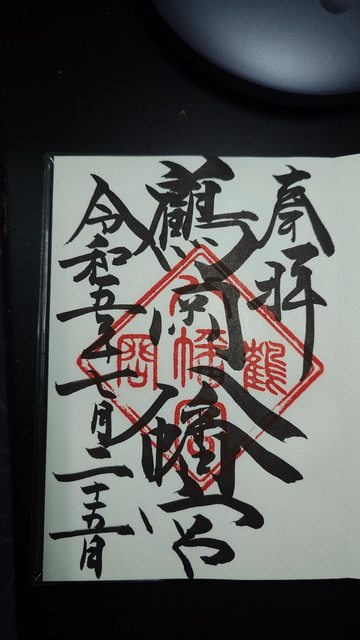 奉拝
鶴岡八幡宮
令和五年七月二十五日
八
鶴 幡 岡
宮